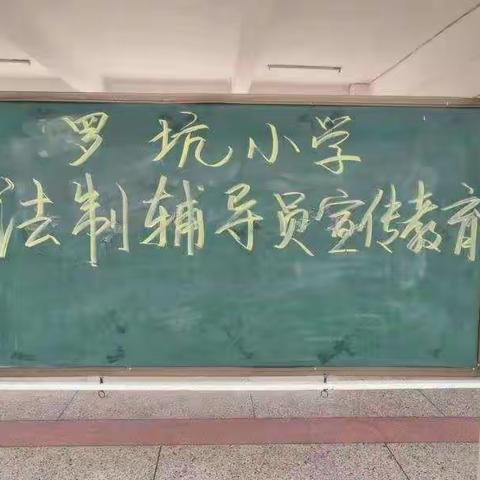 罗坑小学
法制辅导员宣传教育